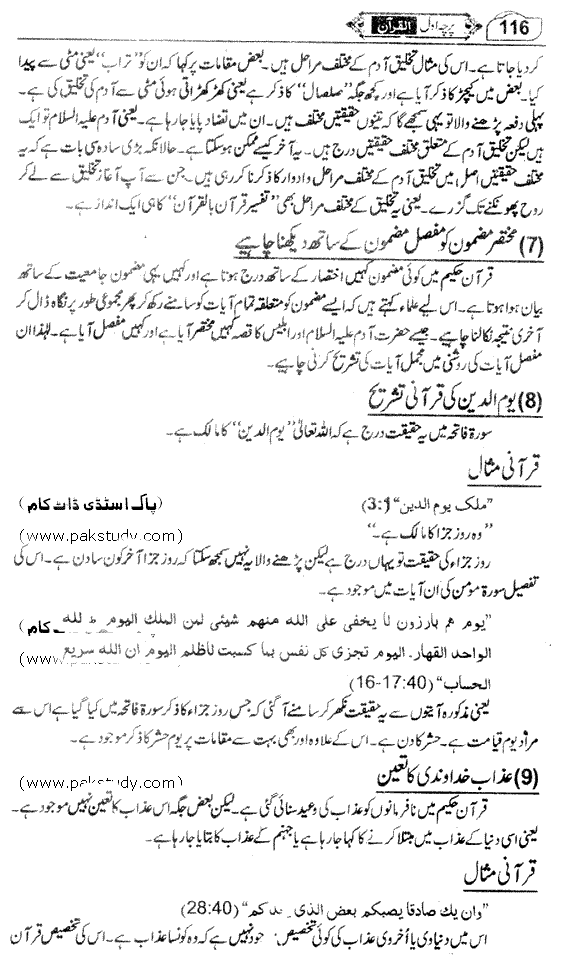 116 پرچہ اول القرآن
کر دیا جاتا ہے۔ اس کی مثال تخلیق آدم کے مختلف مراحل ہیں۔ بعض مقامات پر کہا کہ ان کو ”تراب“ یعنی مٹی سے پیدا
کیا۔ بعض میں کیچڑ کا ذکر آیا ہے اور کچھ جگہ ”صلصال“ کا ذکر ہے یعنی کھڑکھڑاتی ہوئی مٹی سے آدم کی تخلیق کی ہے۔
پہلی دفعہ پڑھنے والا تو یہی سمجھے گا کہ تینوں حقیقتیں مختلف ہیں۔ ان میں تضاد پایا جا رہا ہے۔ یعنی آدم علیہ السلام تو ایک
ہیں لیکن تخلیق آدم کے متعلق مختلف حقیقتیں درج ہیں۔ یہ آخر کیسے ممکن ہو سکتا ہے۔ حالانکہ بڑی سادہ سی بات ہے کہ یہ
مختلف حقیقتیں اصل میں تخلیق آدم کے مختلف مراحل و ادوار کا ذکر کر رہی ہیں۔ جن سے آپ آغاز تخلیق سے لے کر
روح پھونکنے تک گزرے۔ یعنی یہ تخلیق کے مختلف مراحل بھی ”تفسیر قرآن بالقرآن“ کا ہی ایک انداز ہے۔
(7) مختصر مضمون کو مفصل مضمون کے ساتھ دیکھنا چاہیے
قرآن حکیم میں کوئی مضمون کہیں اختصار کے ساتھ درج ہوتا ہے اور کہیں یہی مضمون جامعیت کے ساتھ
بیان ہوا ہوتا ہے۔ اس لیے علماء کہتے ہیں کہ ایسے مضمون کو متعلقہ تمام آیات کو سامنے رکھ کر پھر مجموعی طور پر نگاہ ڈال کر
آخری نتیجہ نکالنا چاہیے۔ جیسے حضرت آدم علیہ السلام اور ابلیس کا قصہ کہیں مختصر آیا ہے اور کہیں مفصل آیا ہے۔ لہٰذا ان
مفصل آیات کی روشنی میں مجمل آیات کی تشریح کرنی چاہیے۔
(8) یوم الدین کی قرآنی تشریح
سورۃ فاتحہ میں یہ حقیقت درج ہے کہ اللہ تعالیٰ ”یوم الدین“ کا مالک ہے۔
قرآنی مثال
”ملک یوم الدین“ (3:1) (پاک اسٹڈی ڈاٹ کام)
”وہ روز جزا کا مالک ہے۔“ (www.pakstudy.com)
روز جزاء کی حقیقت تو یہاں درج ہے لیکن پڑھنے والا یہ نہیں سمجھ سکتا کہ روز جزا آخر کون سا دن ہے۔ اس کی
تفصیل سورۃ مومن کی ان آیات میں موجود ہے۔
”یوم ھم بارزون لا یخفی علی اللہ منھم شیئی لمن الملک الیوم ط للہ کام)
الواحد القھار۔ الیوم تجزی کل نفس بما کسبت لاظلم الیوم ان اللہ سریع (www.
الحساب“ (16-17:40)
یعنی مذکورہ آیتوں سے یہ حقیقت نکھر کر سامنے آ گئی کہ جس روز جزاء کا ذکر سورۃ فاتحہ میں کیا گیا ہے اس سے
مراد یوم قیامت ہے۔ حشر کا دن ہے۔ اس کے علاوہ اور بھی بہت سے مقامات پر یوم حشر کا ذکر موجود ہے۔
(9) عذاب خداوندی کا تعین (www.pakstudy.com)
قرآن حکیم میں نافرمانوں کو عذاب کی وعید سنائی گئی ہے۔ لیکن بعض جگہ اس عذاب کا تعین نہیں موجود ہے۔
یعنی اسی دنیا کے عذاب میں مبتلا کرنے کا کہا جا رہا ہے یا جہنم کے عذاب کا بتایا جا رہا ہے۔
قرآنی مثال
”وان یك صادقا یصبکم بعض الذی کم“ (28:40)
اس میں دنیاوی یا اُخروی عذاب کی کوئی تخصیص نہیں ہے کہ وہ کونسا عذاب ہے۔ اس کی تخصیص قرآن